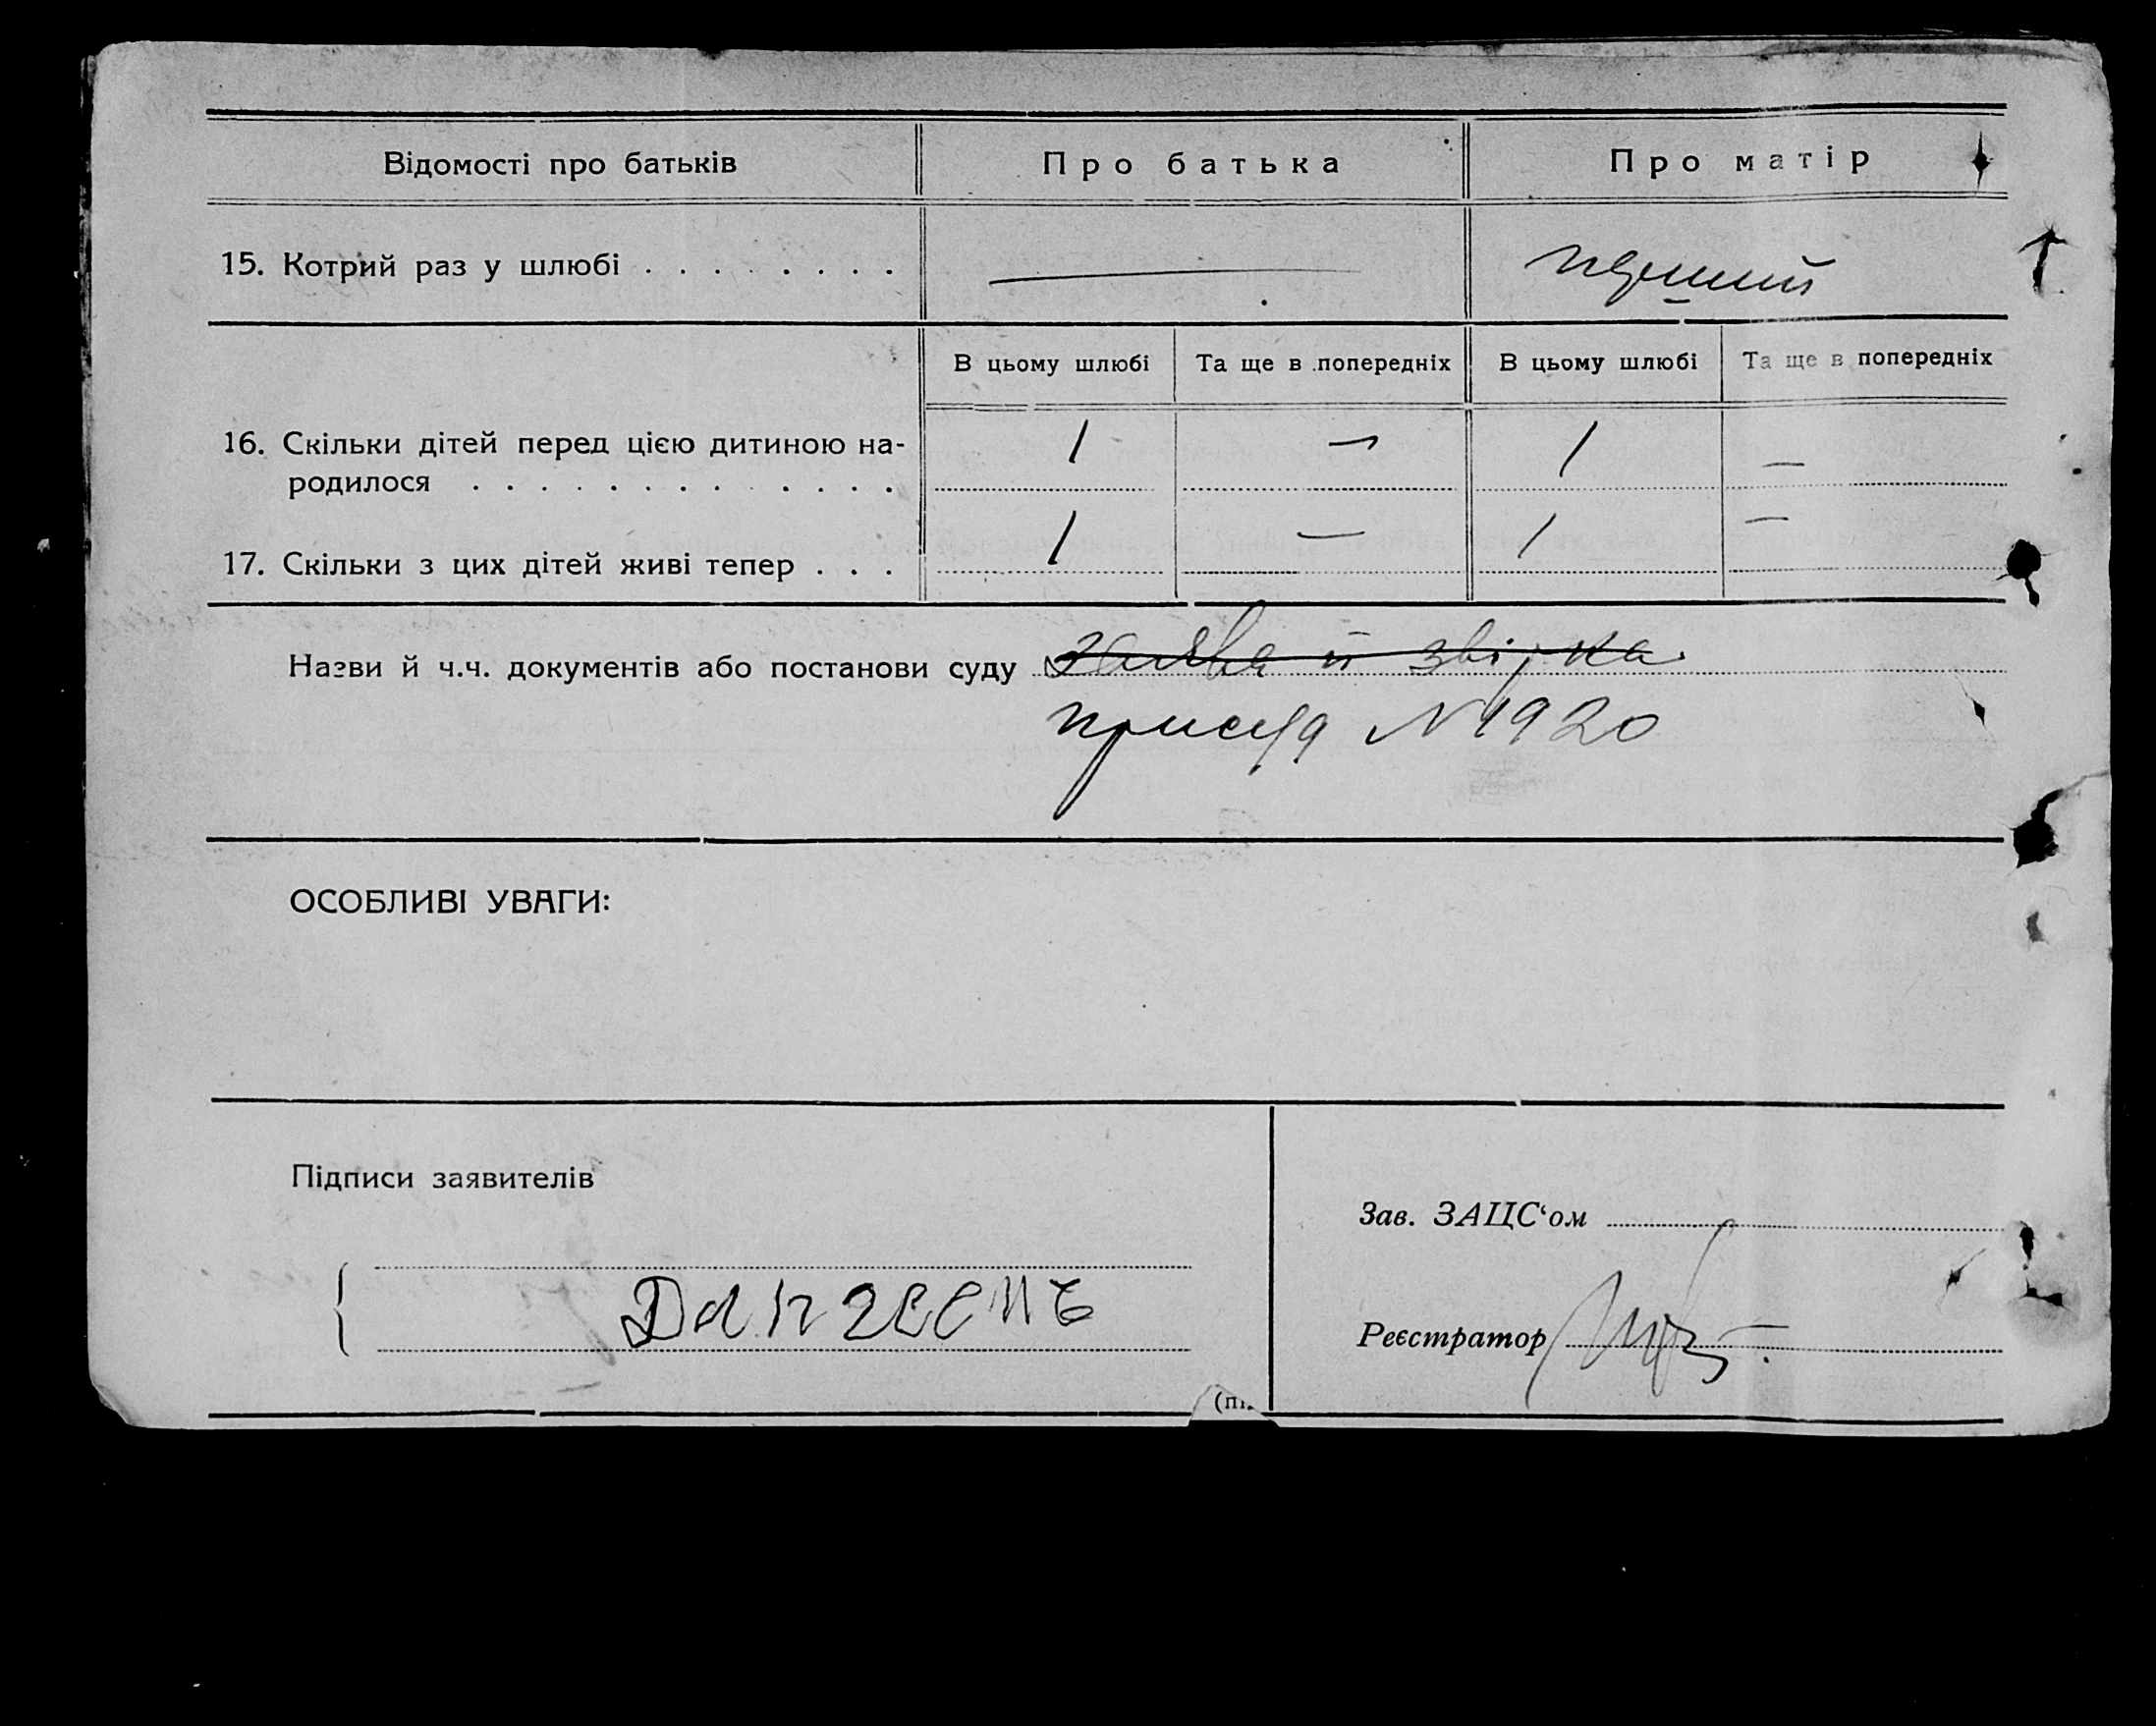 Відомості про батьків Про батька Про матір
15. Котрий раз у шлюбі . . . . . . . . — перший
В цьому шлюбі Та ще в попередніх В цьому шлюбі Та ще в попередніх
16. Скільки дітей перед цією дитиною на-
родилося . . . . . . . . . . . . . 1 — 1 —
17. Скільки з цих дітей живі тепер . . . 1 — 1 —
Назви й ч.ч. документів або постанови суду заява й звірка
присуд N 1920
ОСОБЛИВІ УВАГИ:
Підписи заявителів
Зав. ЗАЦС‘ом
Реєстратор
(пі